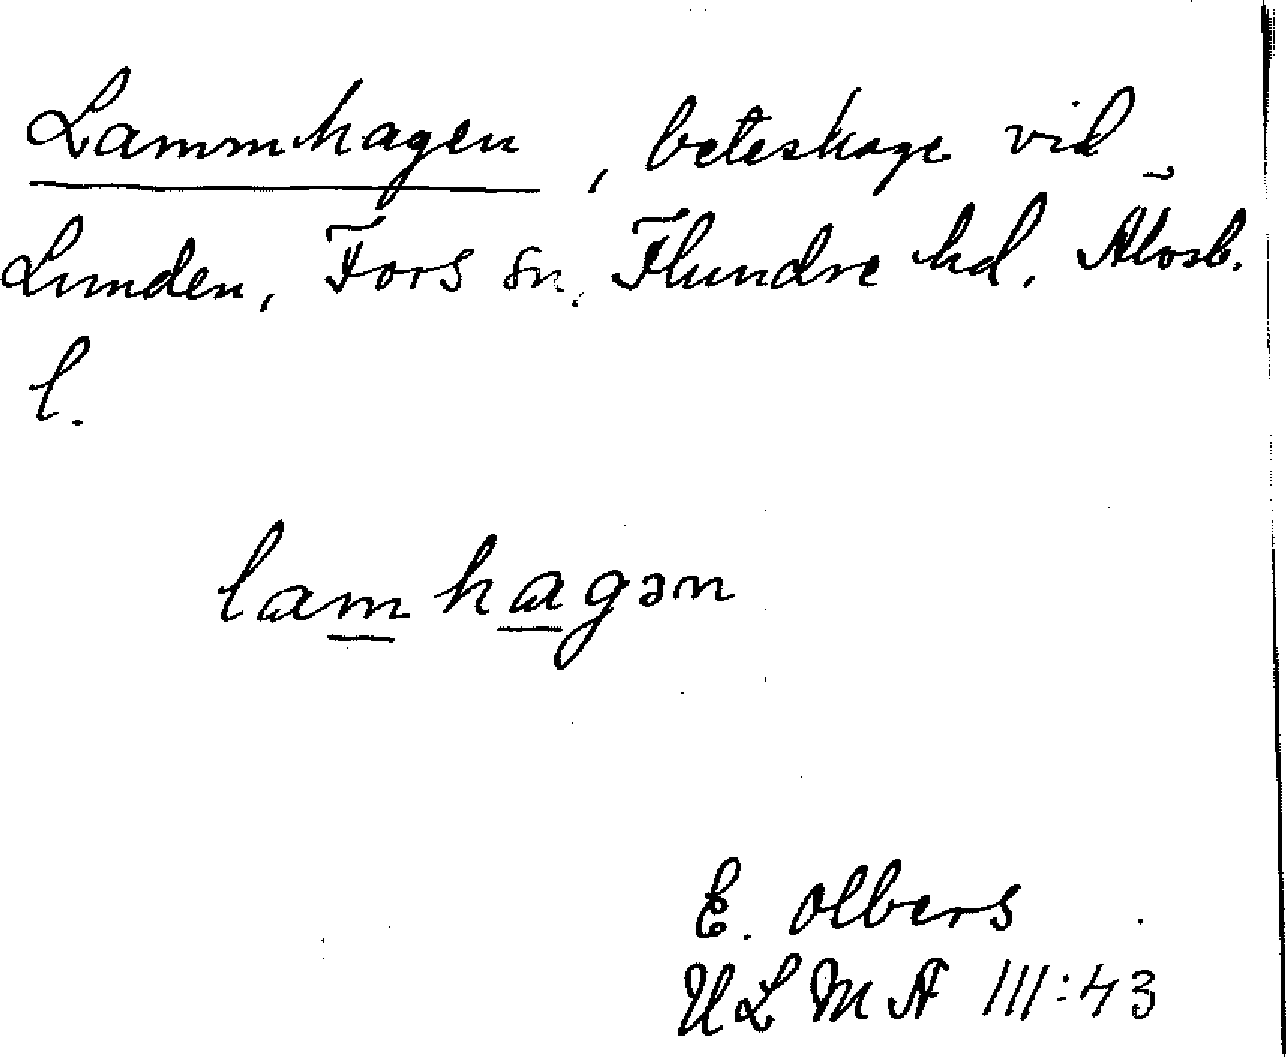 Lammhagen, beteshage vid
Lunden, Fors sn. Flundre hd. Älvsb.
l.
lamhagən
E. Olbers
ULMA III:43